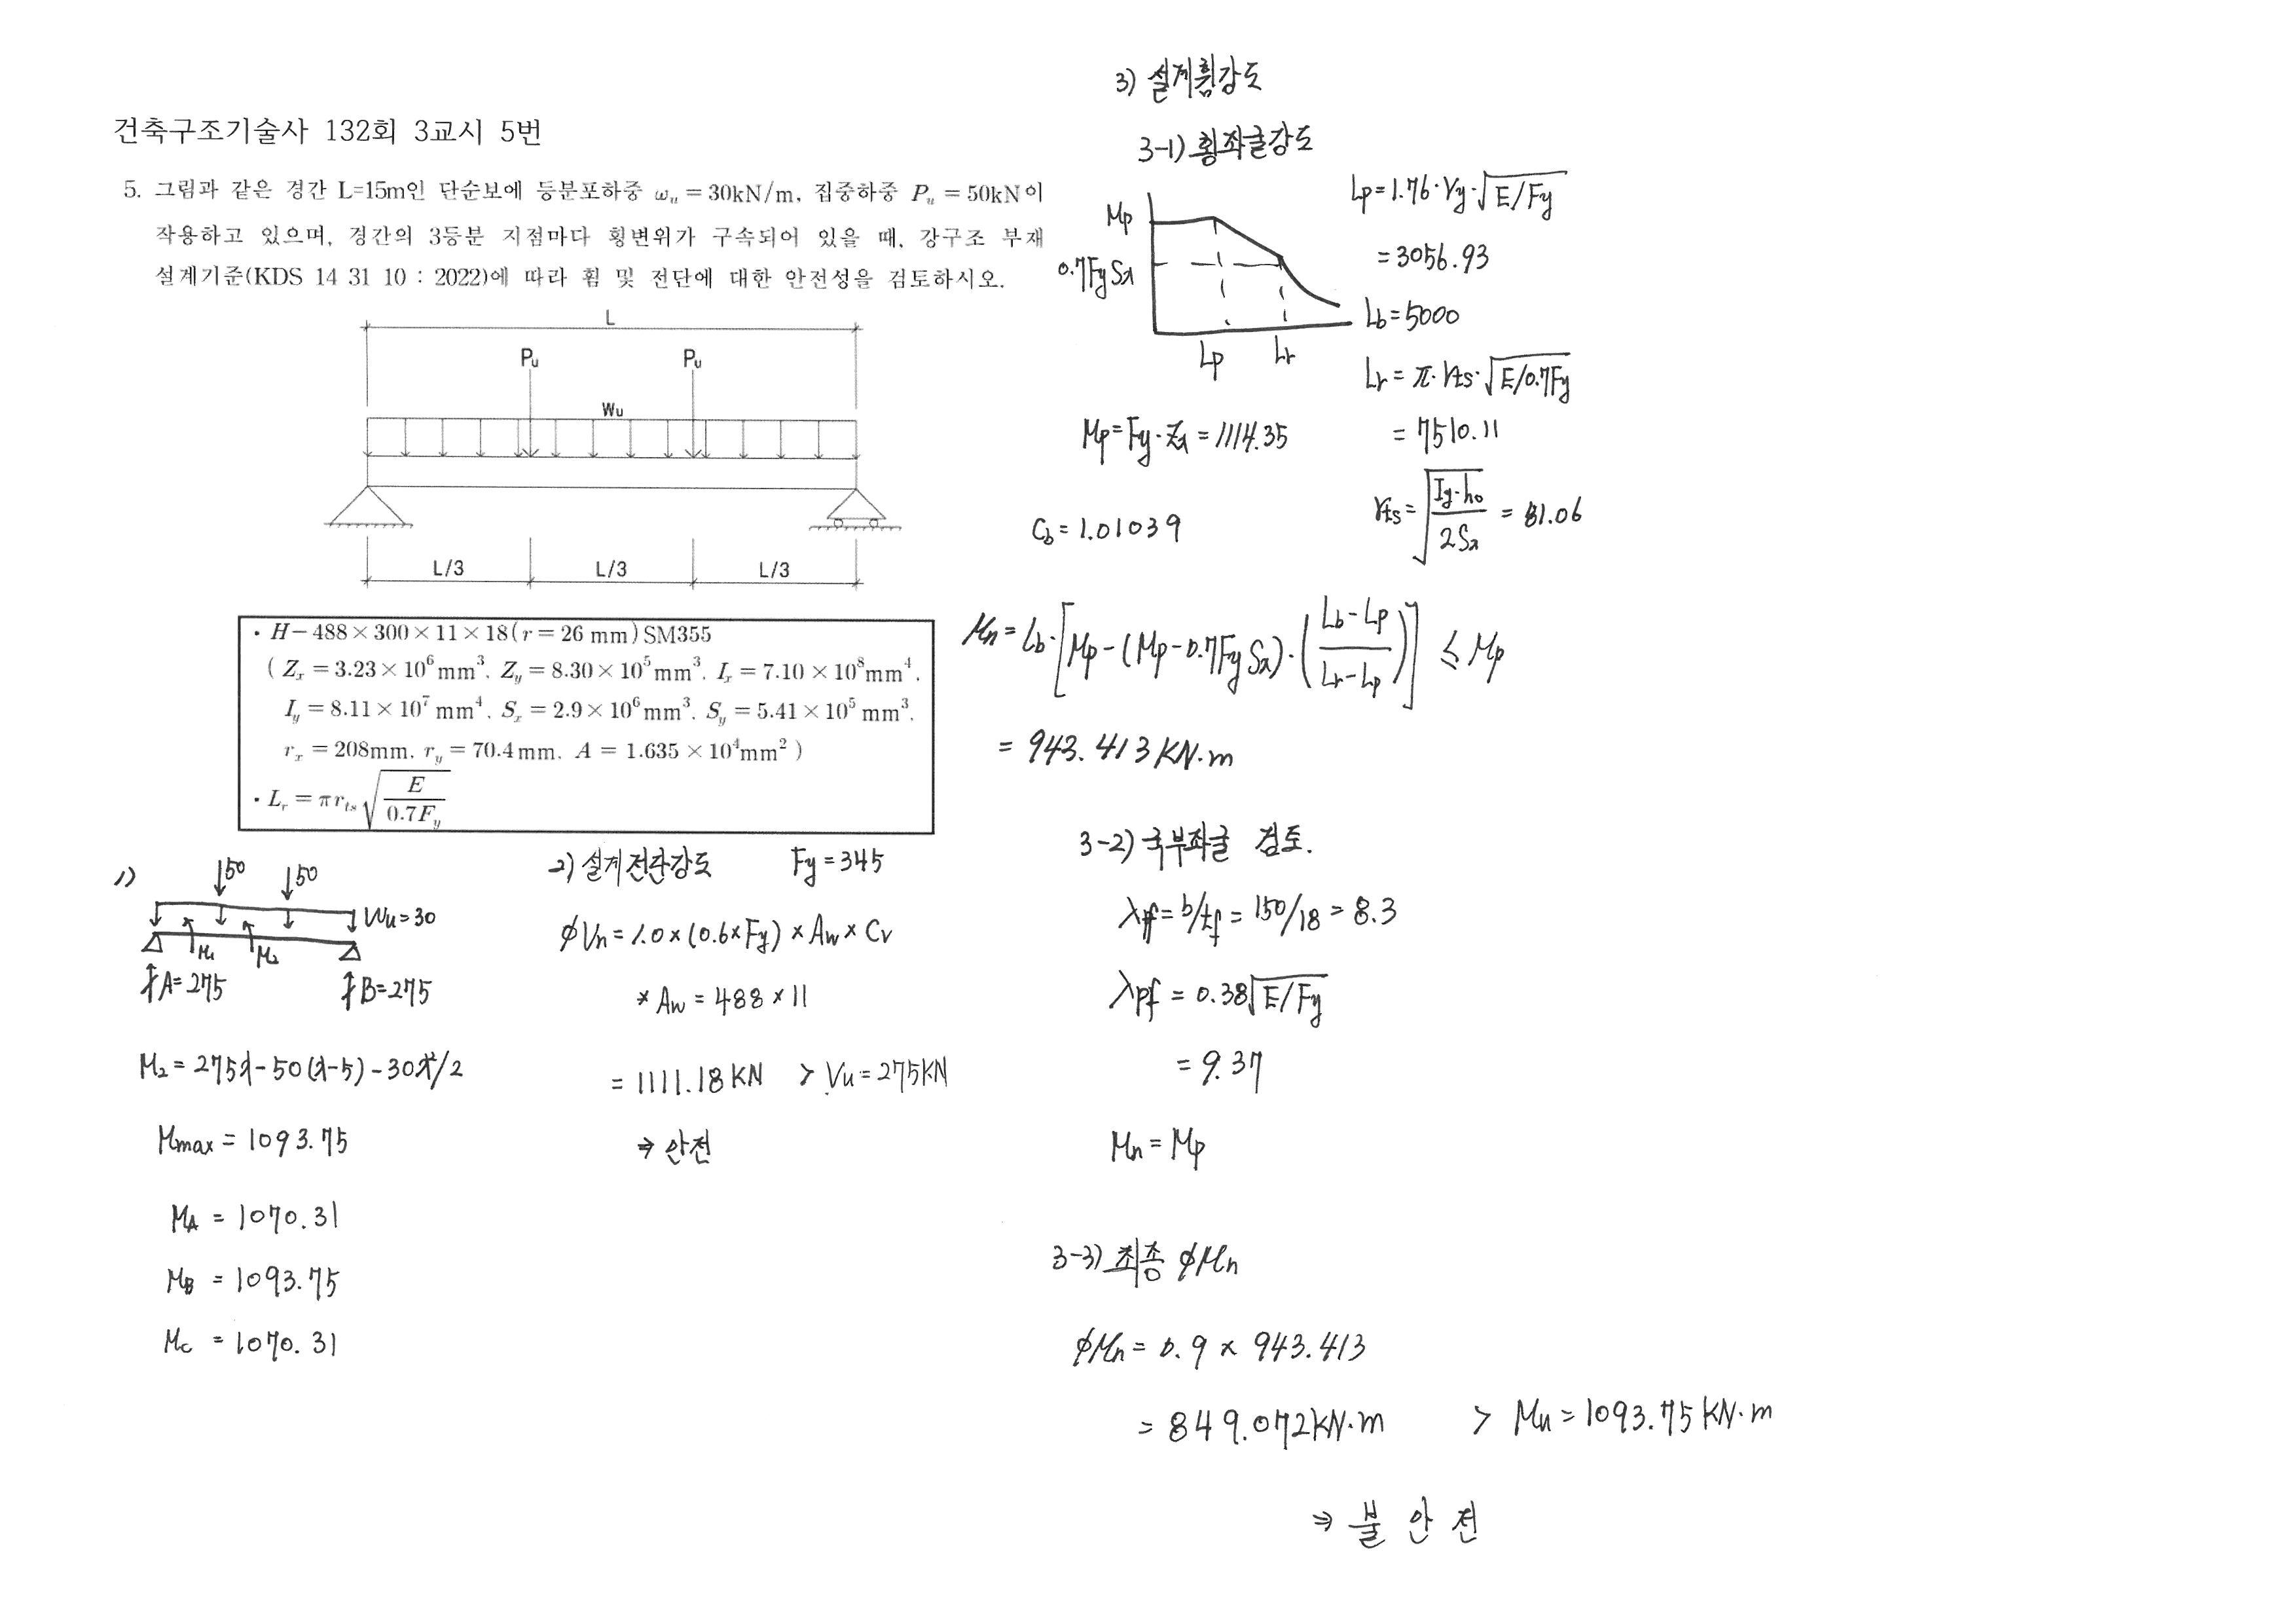 건축구조기술사 132회 3교시 5번
5. 그림과 같은 경간 L=15m인 단순보에 등분포하중 ωu = 30kN/m, 집중하중 Pu = 50kN이
작용하고 있으며, 경간의 3등분 지점마다 횡변위가 구속되어 있을 때, 강구조 부재
설계기준(KDS 14 31 10 : 2022)에 따라 휨 및 전단에 대한 안전성을 검토하시오.
L
Pu Pu
Wu
L/3 L/3 L/3
· H−488×300×11×18(r = 26 mm) SM355
( Zx = 3.23×10⁶mm³, Zy = 8.30×10⁵mm³, Ix = 7.10×10⁸mm⁴,
Iy = 8.11×10⁷mm⁴, Sx = 2.9×10⁶mm³, Sy = 5.41×10⁵mm³,
rx = 208mm, ry = 70.4mm, A = 1.635×10⁴mm² )
· Lr = πrts√(E/0.7Fy)
1)
↓50 ↓50
Wu=30
M1 M2
↑A=275 ↑B=275
M2 = 275x-50(x-5)-30x²/2
Mmax = 1093.75
MA = 1070.31
MB = 1093.75
Mc = 1070.31
2) 설계전단강도 Fy=345
ϕVn = 1.0×(0.6×Fy)×Aw×Cv
* Aw = 488×11
= 1111.18KN > Vu=275KN
⇒ 안전
3) 설계휨강도
3-1) 횡좌굴강도
Mp
0.7FySx
Lp Lr
Lp=1.76·ry·√(E/Fy)
= 3056.93
Lb=5000
Lr = π·rts·√(E/0.7Fy)
= 7510.11
Mp=Fy·Zx=1114.35
rts=√(Iy·ho/2Sx) = 81.06
Cb=1.01039
Mn=Lb·[Mp-(Mp-0.7FySx)·((Lb-Lp)/(Lr-Lp))] ≤ Mp
= 943.413KN·m
3-2) 국부좌굴 검토.
λpf= b/tf = 150/18 = 8.3
λpf = 0.38√(E/Fy)
= 9.37
Mn = Mp
3-3) 최종 ϕMn
ϕMn= 0.9 × 943.413
= 849.072KN·m > Mu=1093.75KN·m
⇒ 불 안 전